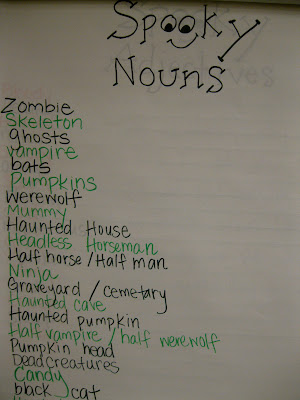 Spooky
Nouns
Zombie
Skeleton
ghosts
vampire
bats
Pumpkins
werewolf
Mummy
Haunted House
Headless Horseman
Half horse / Half man
Ninja
Graveyard / cemetary
Haunted cave
Haunted pumpkin
Half vampire / half werewolf
Pumpkin head
Dead creatures
Candy
black cat